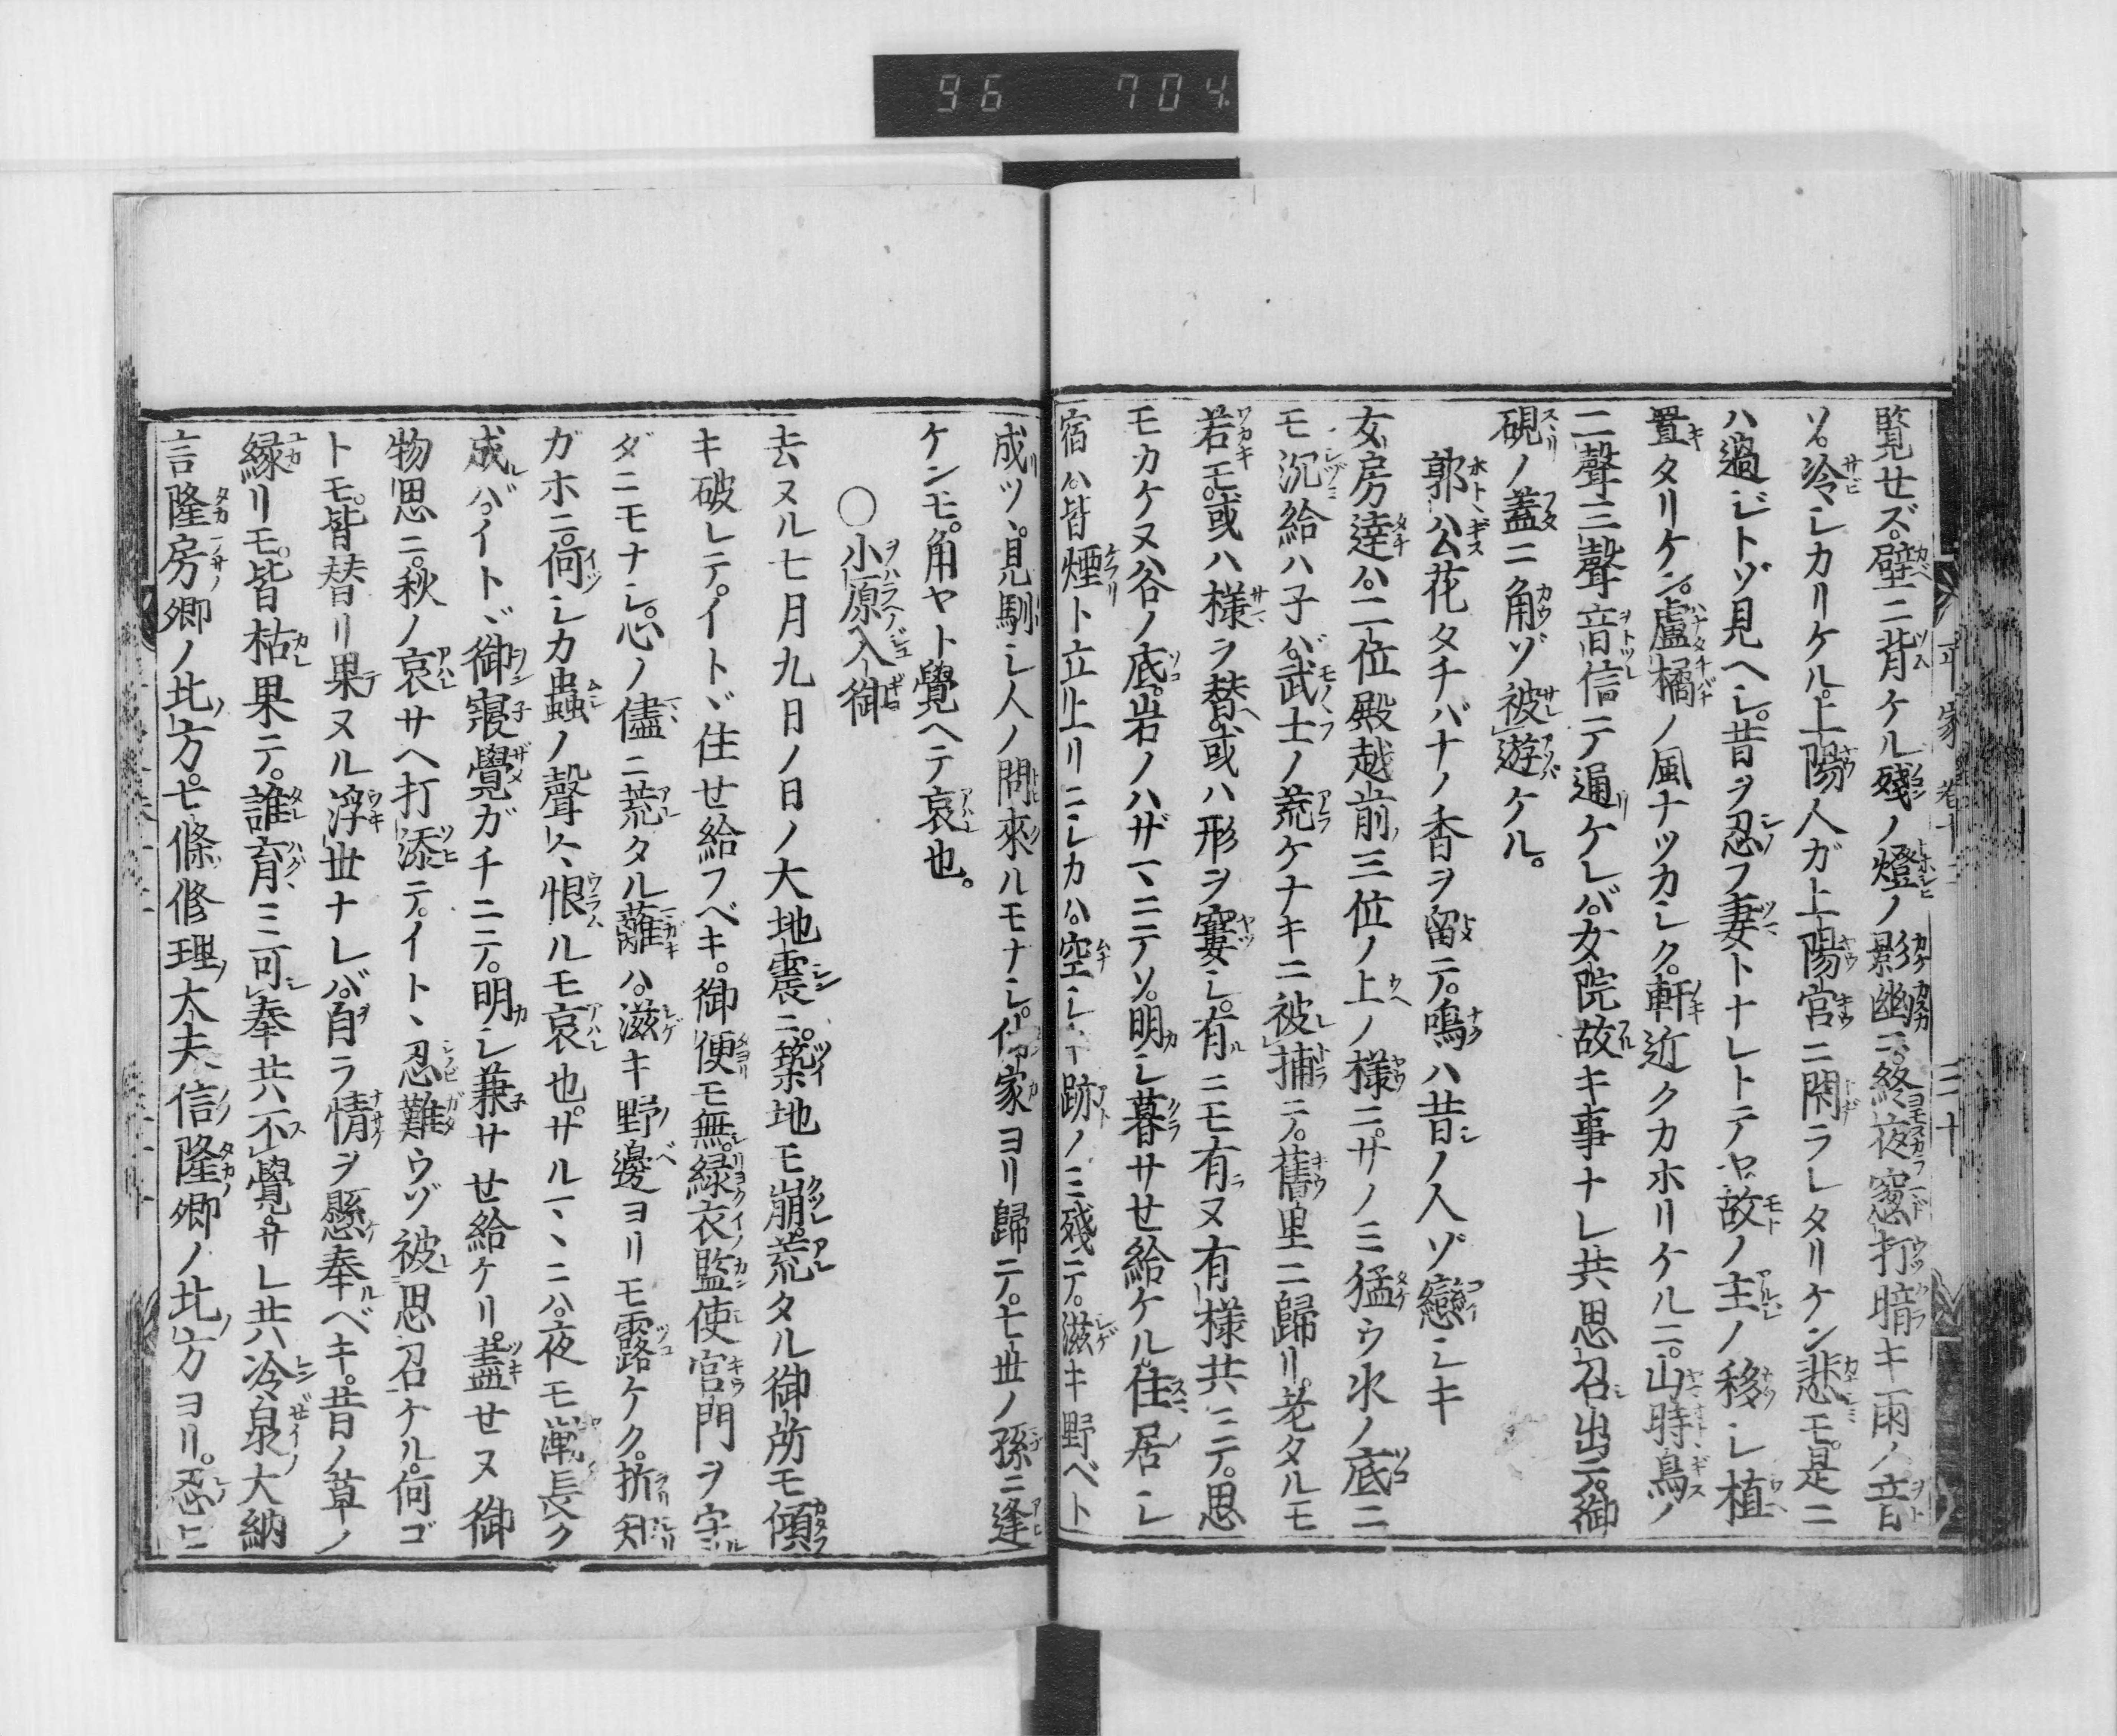 96 704
覧せズ。壁ニ背ケル殘ノ燈ノ影幽ニ終夜窓打暗キ雨ノ音
ソ。冷シカリケル。上陽人ガ上陽宮ニ閉ラレタリケン悲モ。是ニ
ハ過ジトゾ見ヘシ。昔ヲ忍フ妻トナレトテヤ故ノ主ノ移シ植
置タリケン。盧橘ノ風ナツカシク。軒近クカホリケルニ。山時鳥ノ
二聲三聲音信テ通ケレバ。女院故キ事ナレ共思召出テ。御
硯ノ蓋ニ角ゾ被遊ケル。
郭公花タチバナノ香ヲ留テ。鳴ハ昔ノ人ゾ戀シキ
女房達ハ。二位殿越前三位ノ上ノ様ニ。サノミ猛ウ水ノ底ニ
モ沉給ハ子バ。武士ノ荒ケナキニ被捕テ。舊里ニ歸リ。老タルモ
若モ。或ハ様ヲ替。或ハ形ヲ窶シ。有ニモ有ヌ有様共ニテ。思
モカケヌ谷ノ底。岩ノハザマニテソ。明シ暮サせ給ケル。住居シ
宿ハ皆煙ト立上リニシカハ。空シキ跡ノミ殘テ。滋キ野ベト
成ツヽ。見馴シ人ノ問來ルモナシ。仙家ヨリ歸テ。七世ノ孫ニ逢
ケンモ。角ヤト覺ヘテ哀也。
○小原入御
去ヌル七月九日ノ日ノ大地震ニ。築地モ崩。荒タル御所モ傾
キ破レテ。イトヾ住せ給フベキ。御便モ無。緑衣監使宮門ヲ守
ダニモナシ。心ノ儘ニ荒タル籬ハ。滋キ野邊ヨリモ露ケク。折知
ガホニ。何シカ蟲ノ聲々、恨ルモ哀也。サルマヽニハ。夜モ漸長ク
成ハ。イトヾ御寝覺ガチニテ。明シ兼サせ給ケリ。盡せヌ御
物思ニ。秋ノ哀サヘ打添テ。イトヽ忍難ウゾ被思召ケル。何ゴ
トモ。皆替リ果ヌル浮世ナレバ。自ラ情ヲ懸奉ベキ。昔ノ草ノ
縁リモ。皆枯果テ。誰育ミ可奉共不覺。サレ共冷泉大納
言隆房卿ノ北方。七條修理大夫信隆卿ノ北方ヨリ。忍ヒ